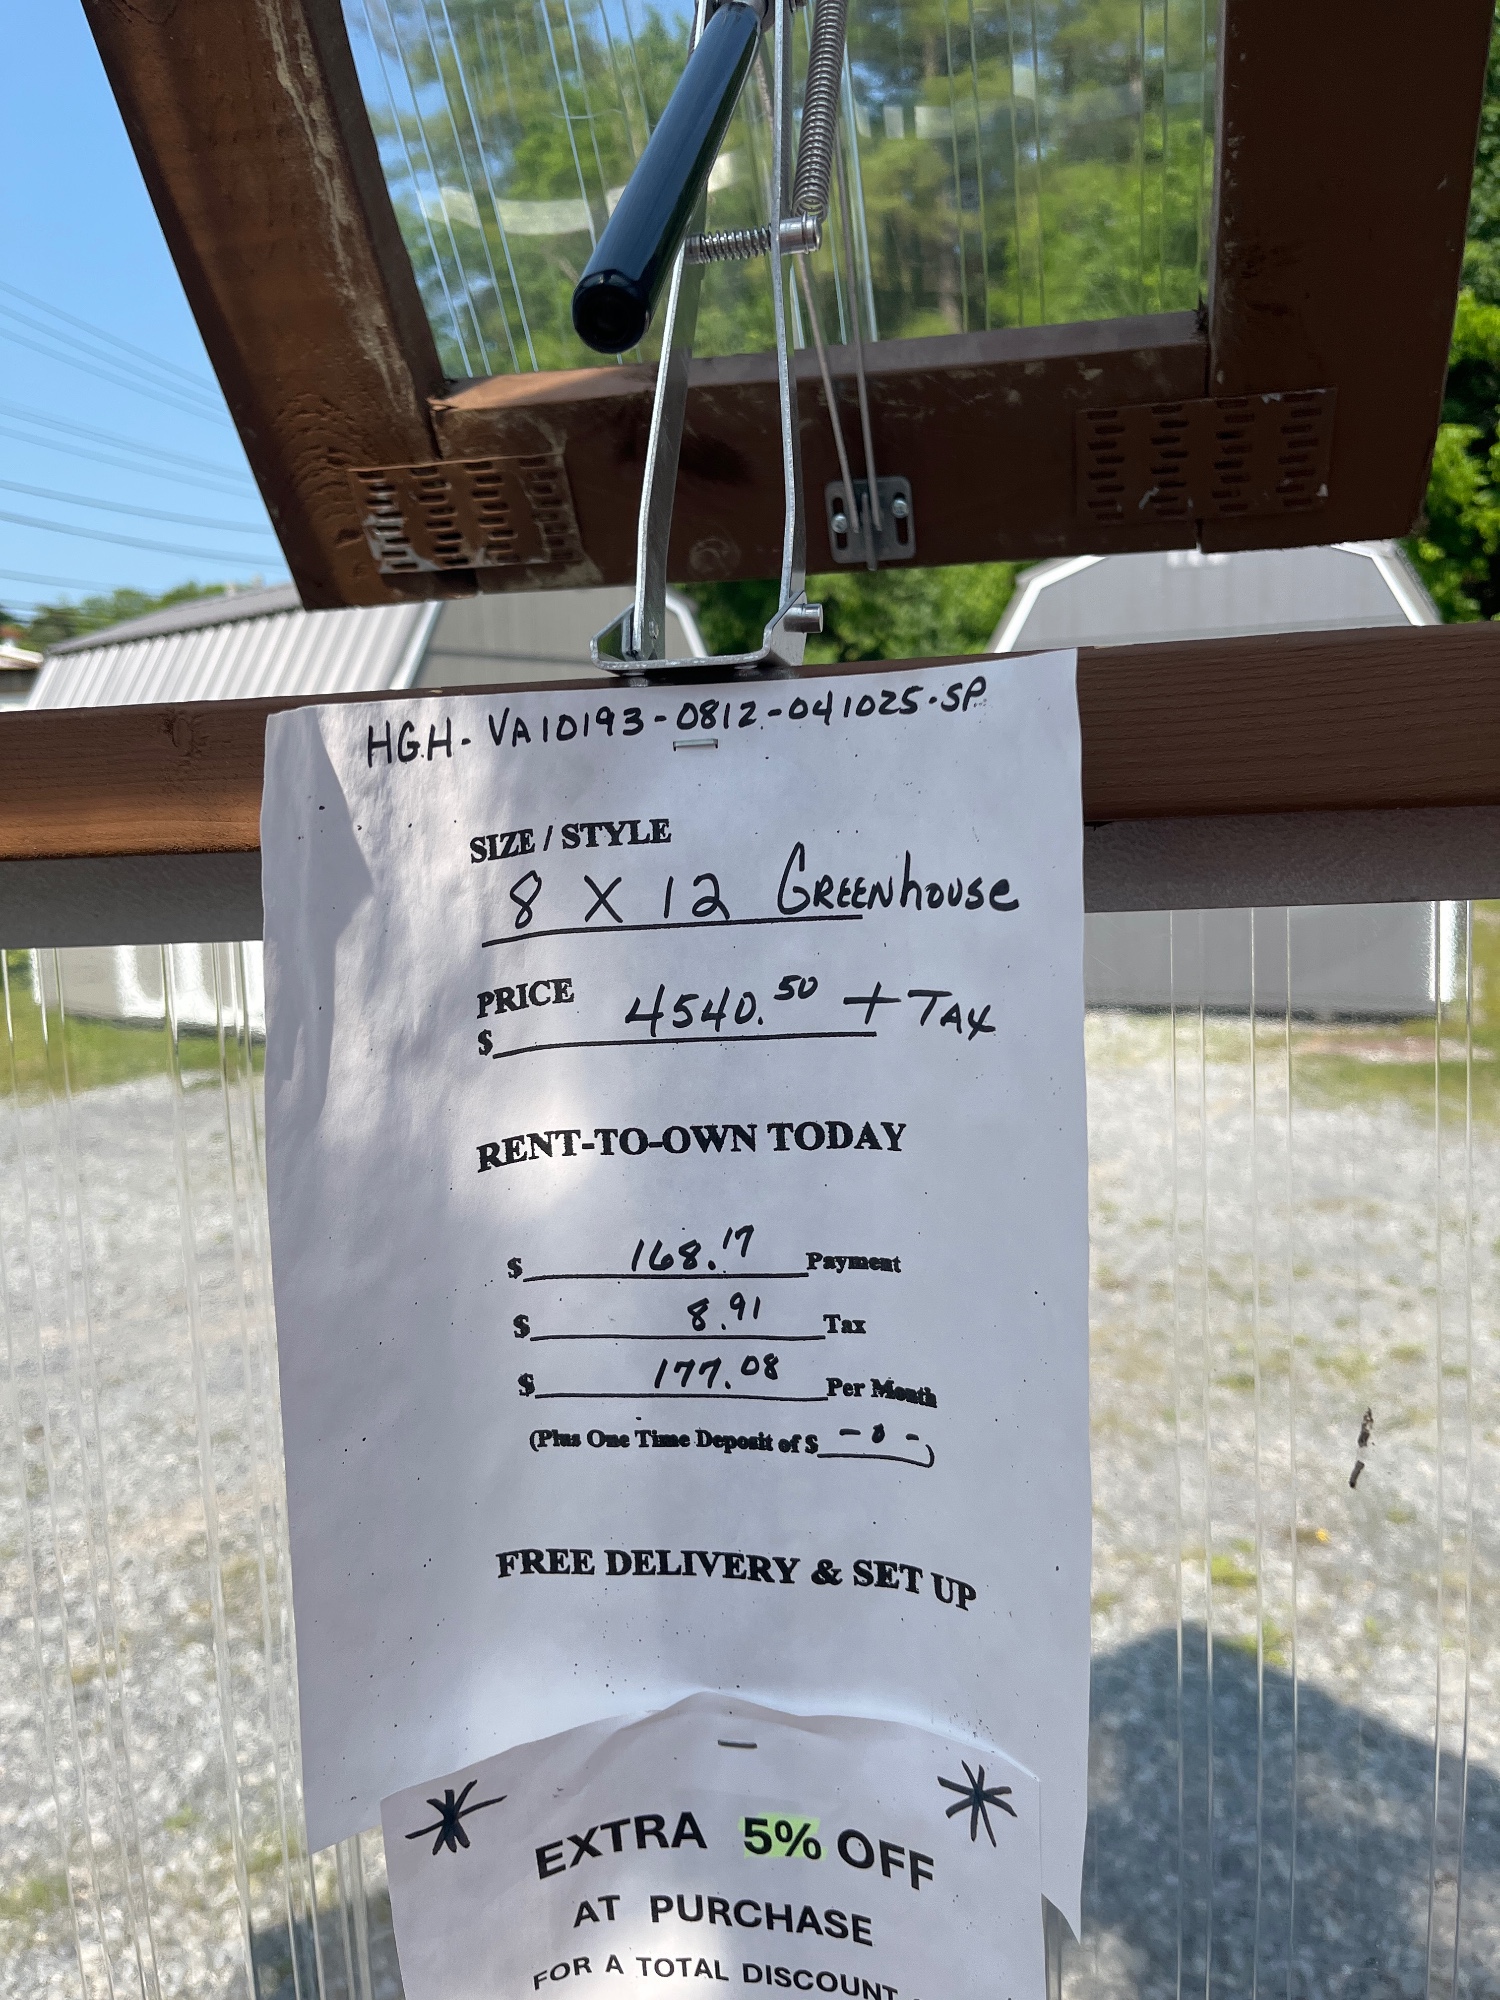 HGH-VA10193-0812-041025-SP
SIZE / STYLE
8 X 12 GREENhOUSe
PRICE
$ 4540.50 + TAX
RENT-TO-OWN TODAY
$ 168.17 Payment
$ 8.91 Tax
$ 177.08 Per Month
(Plus One Time Deposit of $ -0-)
FREE DELIVERY & SET UP
* *
EXTRA 5% OFF
AT PURCHASE
FOR A TOTAL DISCOUNT